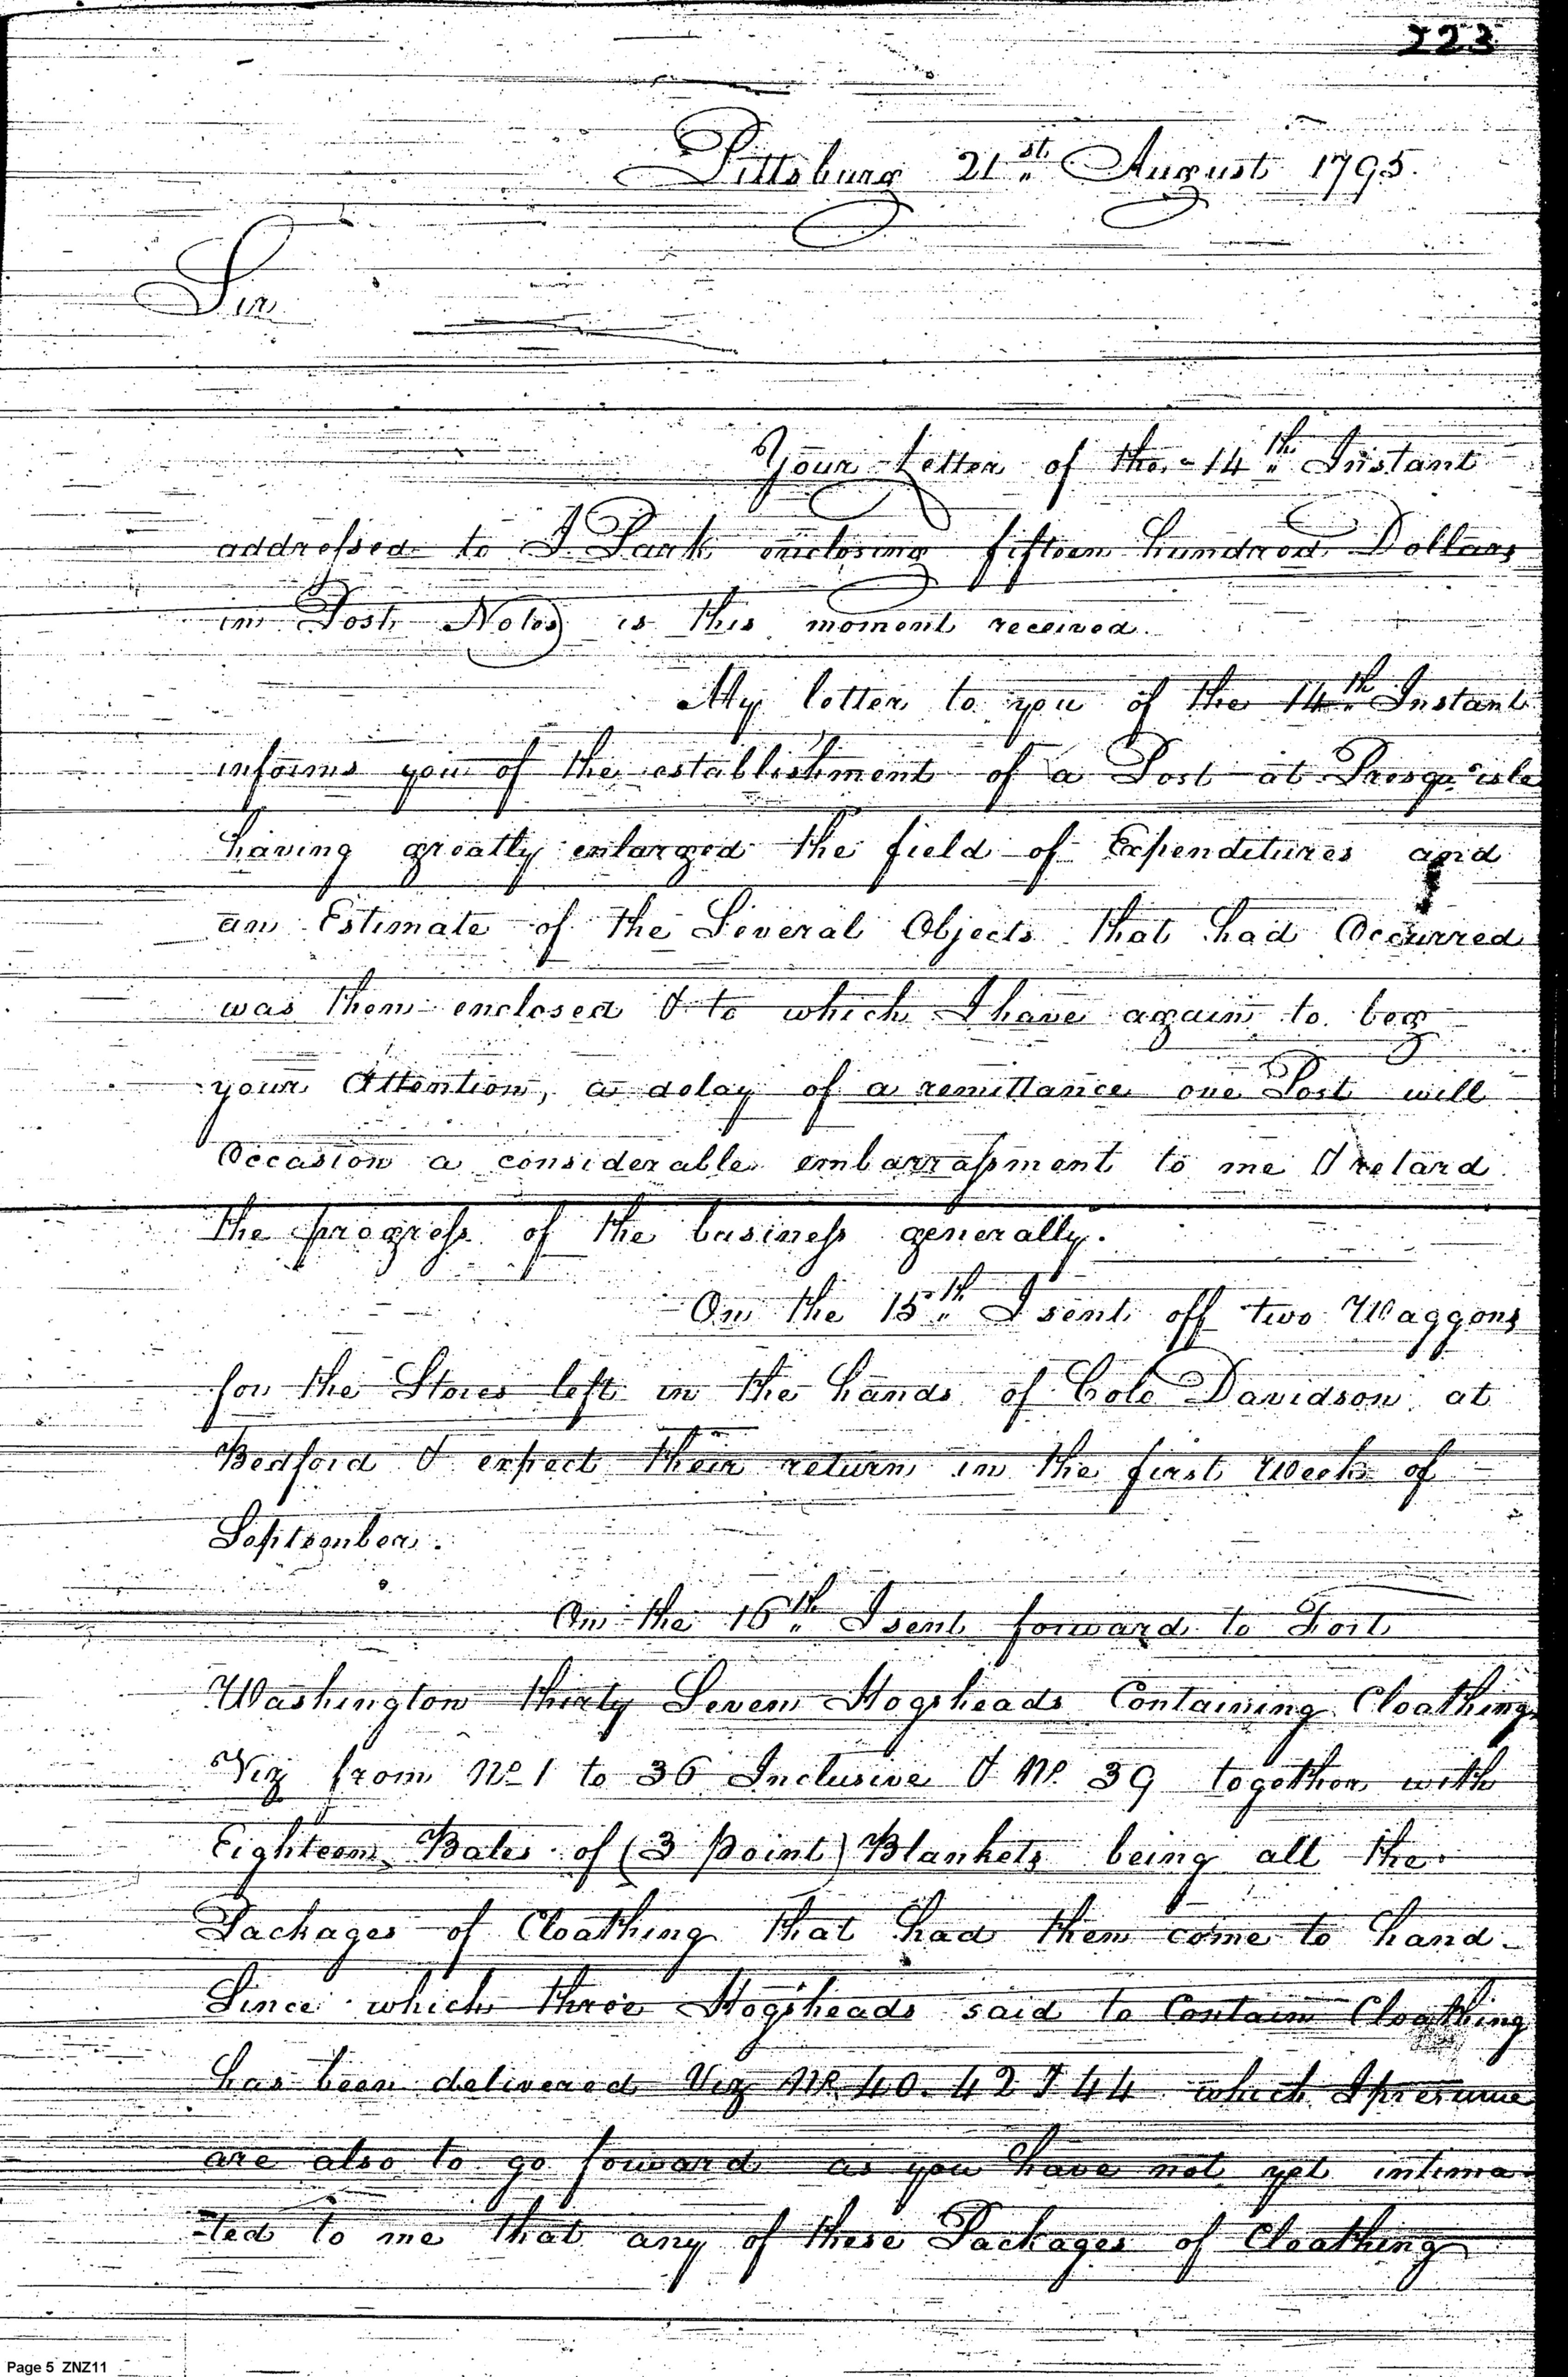 223
Pittsburg 21st August 1795.
Sir
Your Letter of the 14th Instant
addressed to I Park enclosing fifteen hundred Dollars
in Post Notes is this moment received.
My letter to you of the 14th Instant
informs you of the establishment of a Post at Presqu'isle
having greatly enlarged the field of Expenditures and
an Estimate of the Several Objects that had Occurred
was then enclosed & to which I have again to beg
your Attention, a delay of a remittance one Post will
Occasion a considerable embarrassment to me & retard
the progress of the business generally.
On the 15th I sent off two Waggons
for the Stores left in the hands of Colo Davidson at
Bedford & expect their return in the first Week of
September.
On the 16th I sent forward to Fort
Washington thirty Seven Hogsheads Containing Cloathing
Viz from No 1 to 36 Inclusive & No. 39 together with
Eighteen Bales of (3 point) Blankets being all the
Packages of Cloathing that had then come to hand -
Since which three Hogsheads said to Contain Cloathing
has been delivered Viz No 40. 42 & 44 which I presume
are also to go forward as you have not yet intima-
-ted to me that any of these Packages of Cloathing
Page 5 ZNZ11